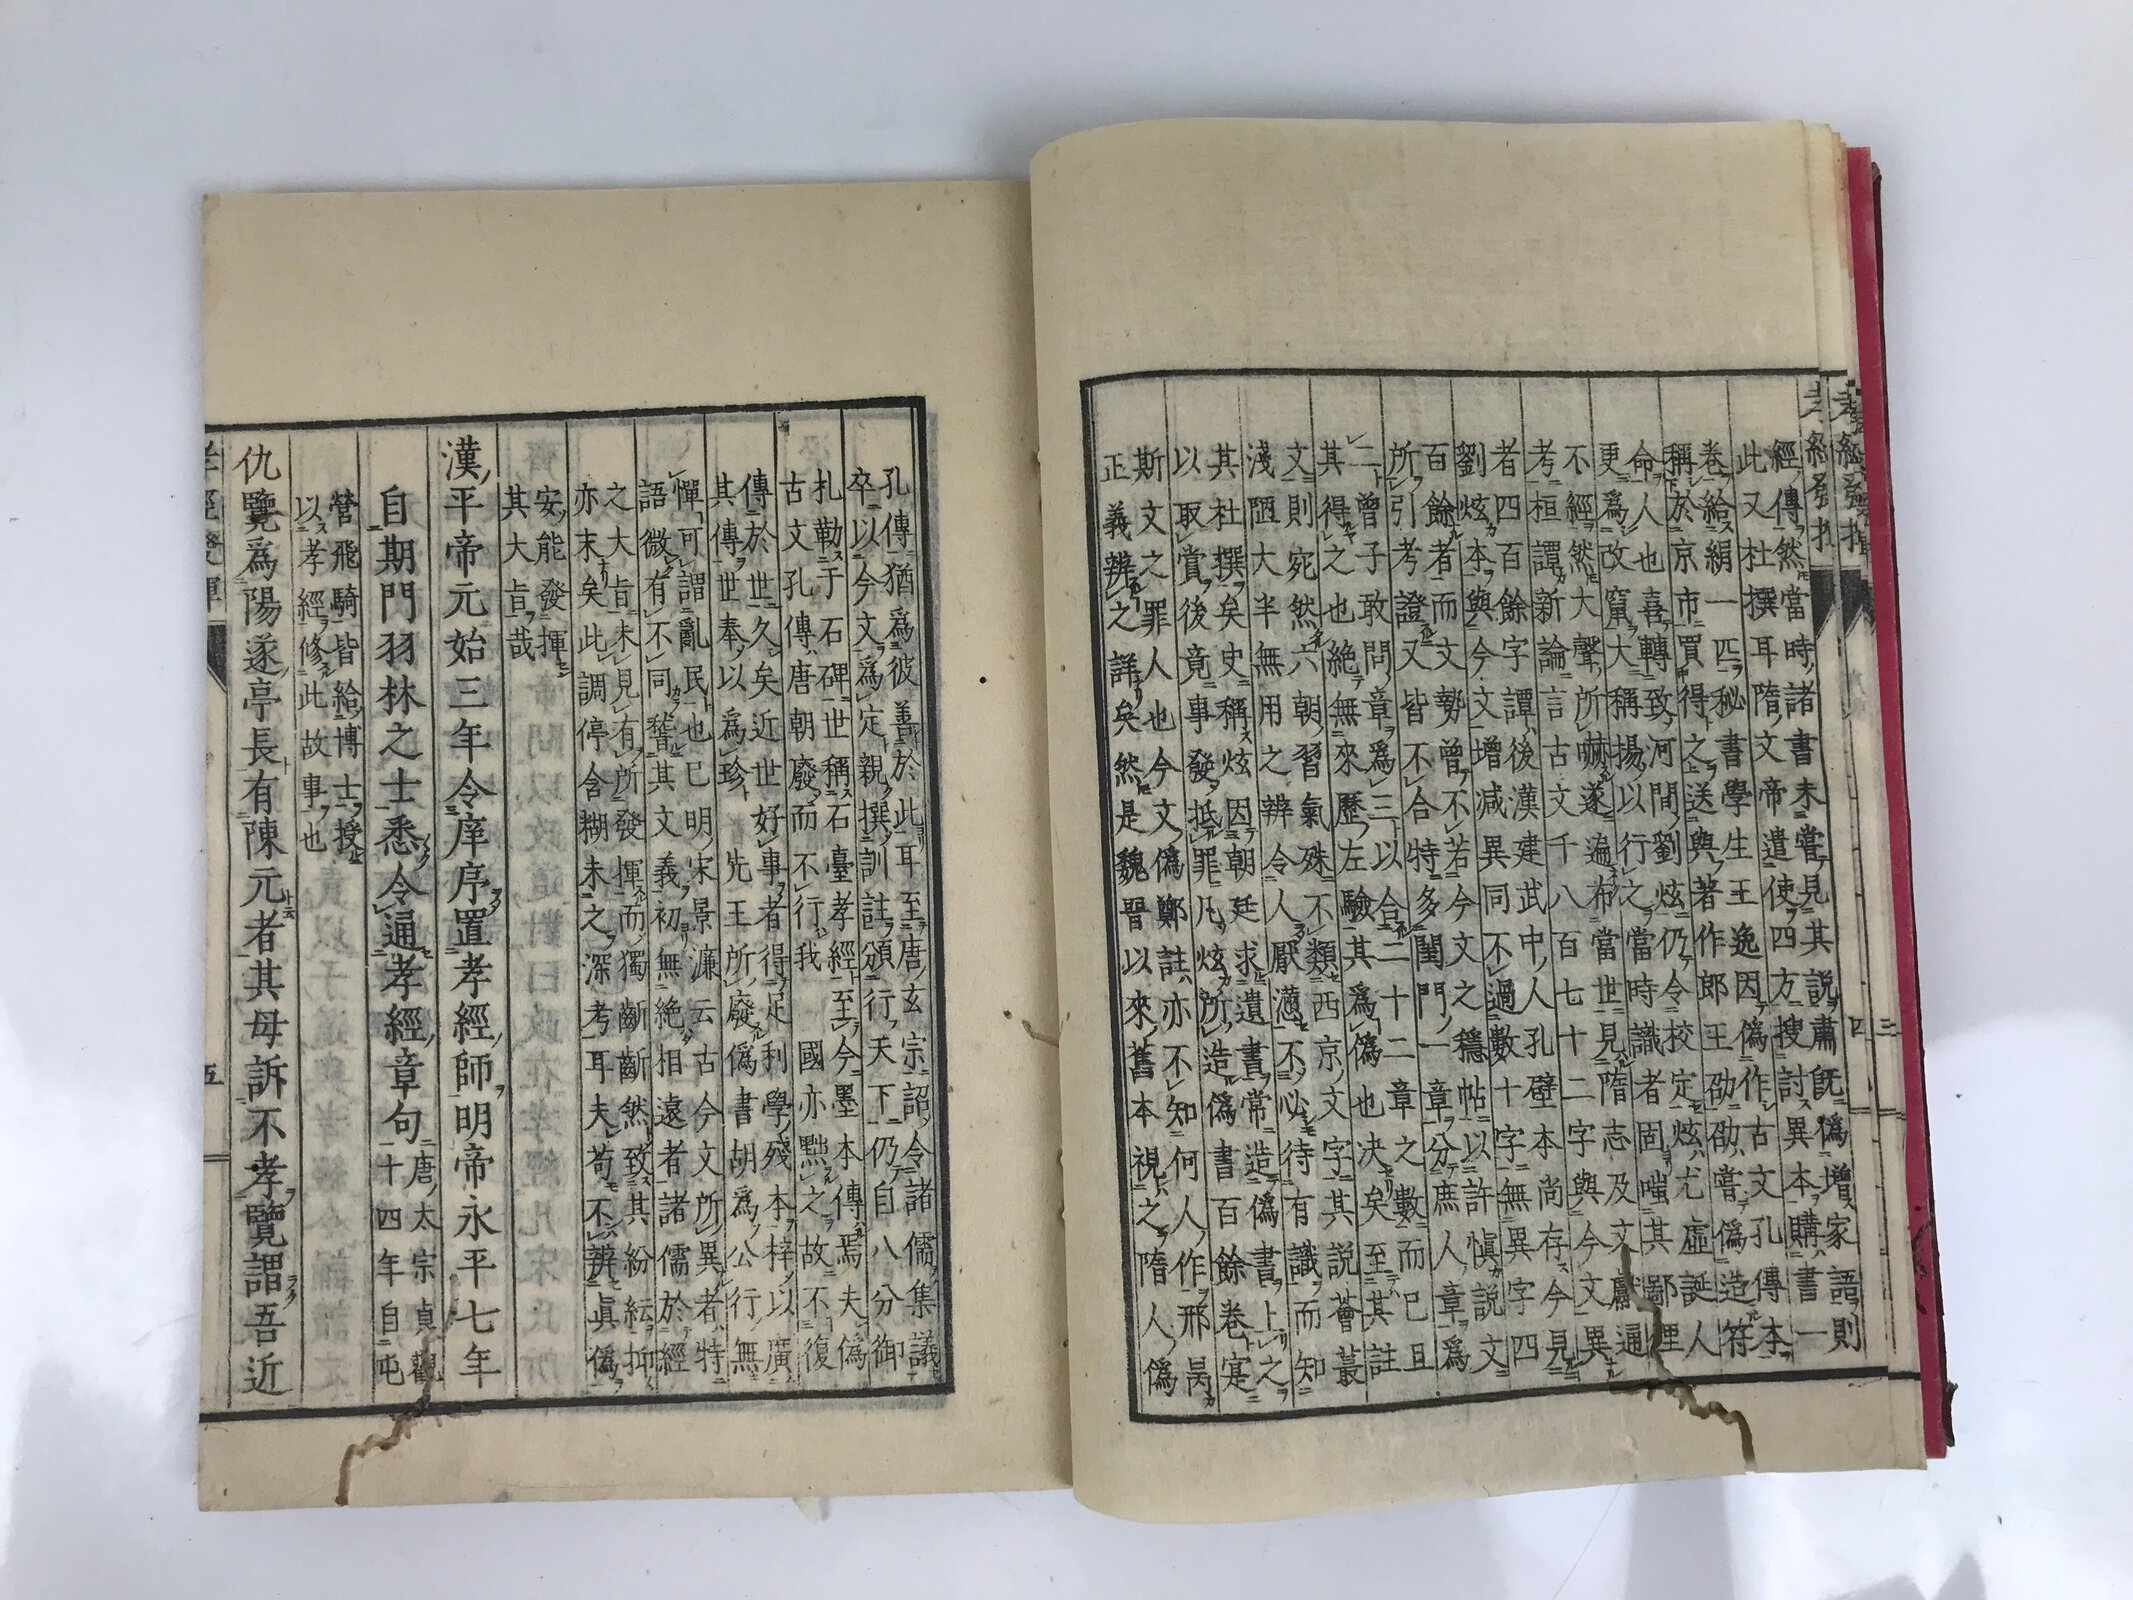 經傳然當時諸書未嘗見其說肅既僞增家語則
此又杜撰耳隋文帝遣使四方搜討異本購書一
卷給絹一匹秘書學生王逸因僞作古文孔傳本
稱於京市買得之送與著作郎王劭劭嘗僞造符
命人也喜轉致河間劉炫仍令校定炫尤虛誕人
更爲改竄大稱揚以行之當時識者固嗤其鄙俚
不經然大聲所嚇遂遍布當世見隋志及文獻通
考桓譚新論言古文千八百七十二字與今文異
者四百餘字譚後漢建武中人孔壁本尚存今見
劉炫本與今文增減異同不過數十字無異字四
百餘者而文勢曾不若今文之穩帖以許愼說文
所引考證又皆不合特多閨門一章分庶人章爲
二曾子敢問章爲三以合二十二章之數而已且
其得之也絕無來歷左驗其爲僞也決矣至其註
文則宛然六朝習氣殊不類西京文字其說薈蕞
淺陋大半無用之辨令人厭懣不必待有識而知
其杜撰矣史稱炫因朝廷求遺書常造僞書上之
以取賞後竟事發抵罪凡炫所造僞書百餘卷寔
斯文之罪人也今文僞鄭註亦不知何人作邢昺
正義辨之詳矣然是魏晉以來舊本視之隋人僞
孔傳猶爲彼善於此耳至唐玄宗詔令諸儒集議
卒以今文爲定親撰訓註頒行天下仍自八分御
札勒于石碑世稱石臺孝經至今墨本傳焉夫僞
古文孔傳唐朝廢而不行我國亦黜之故不復
傳於世久矣近世好事者得足利學殘本梓以廣
其傳世奉以爲珍先王所廢僞書胡爲公行無
憚可謂亂民也已明宋景濂云古今文所異者特
語微有不同稽其文義初無絕相遠者諸儒於經
之大旨未見有所發揮而獨斷斷然致其紛紜抑
亦末矣此調停含糊未之深考耳夫苟不辨眞僞
安能發揮
其大旨哉
漢平帝元始三年令庠序置孝經師明帝永平七年
自期門羽林之士悉令通孝經章句
唐太宗貞觀
二十四年自屯
營飛騎皆給博士授
以孝經修此故事也
仇覽爲陽遂亭長有陳元者其母訴不孝覽謂吾近
五
三
四